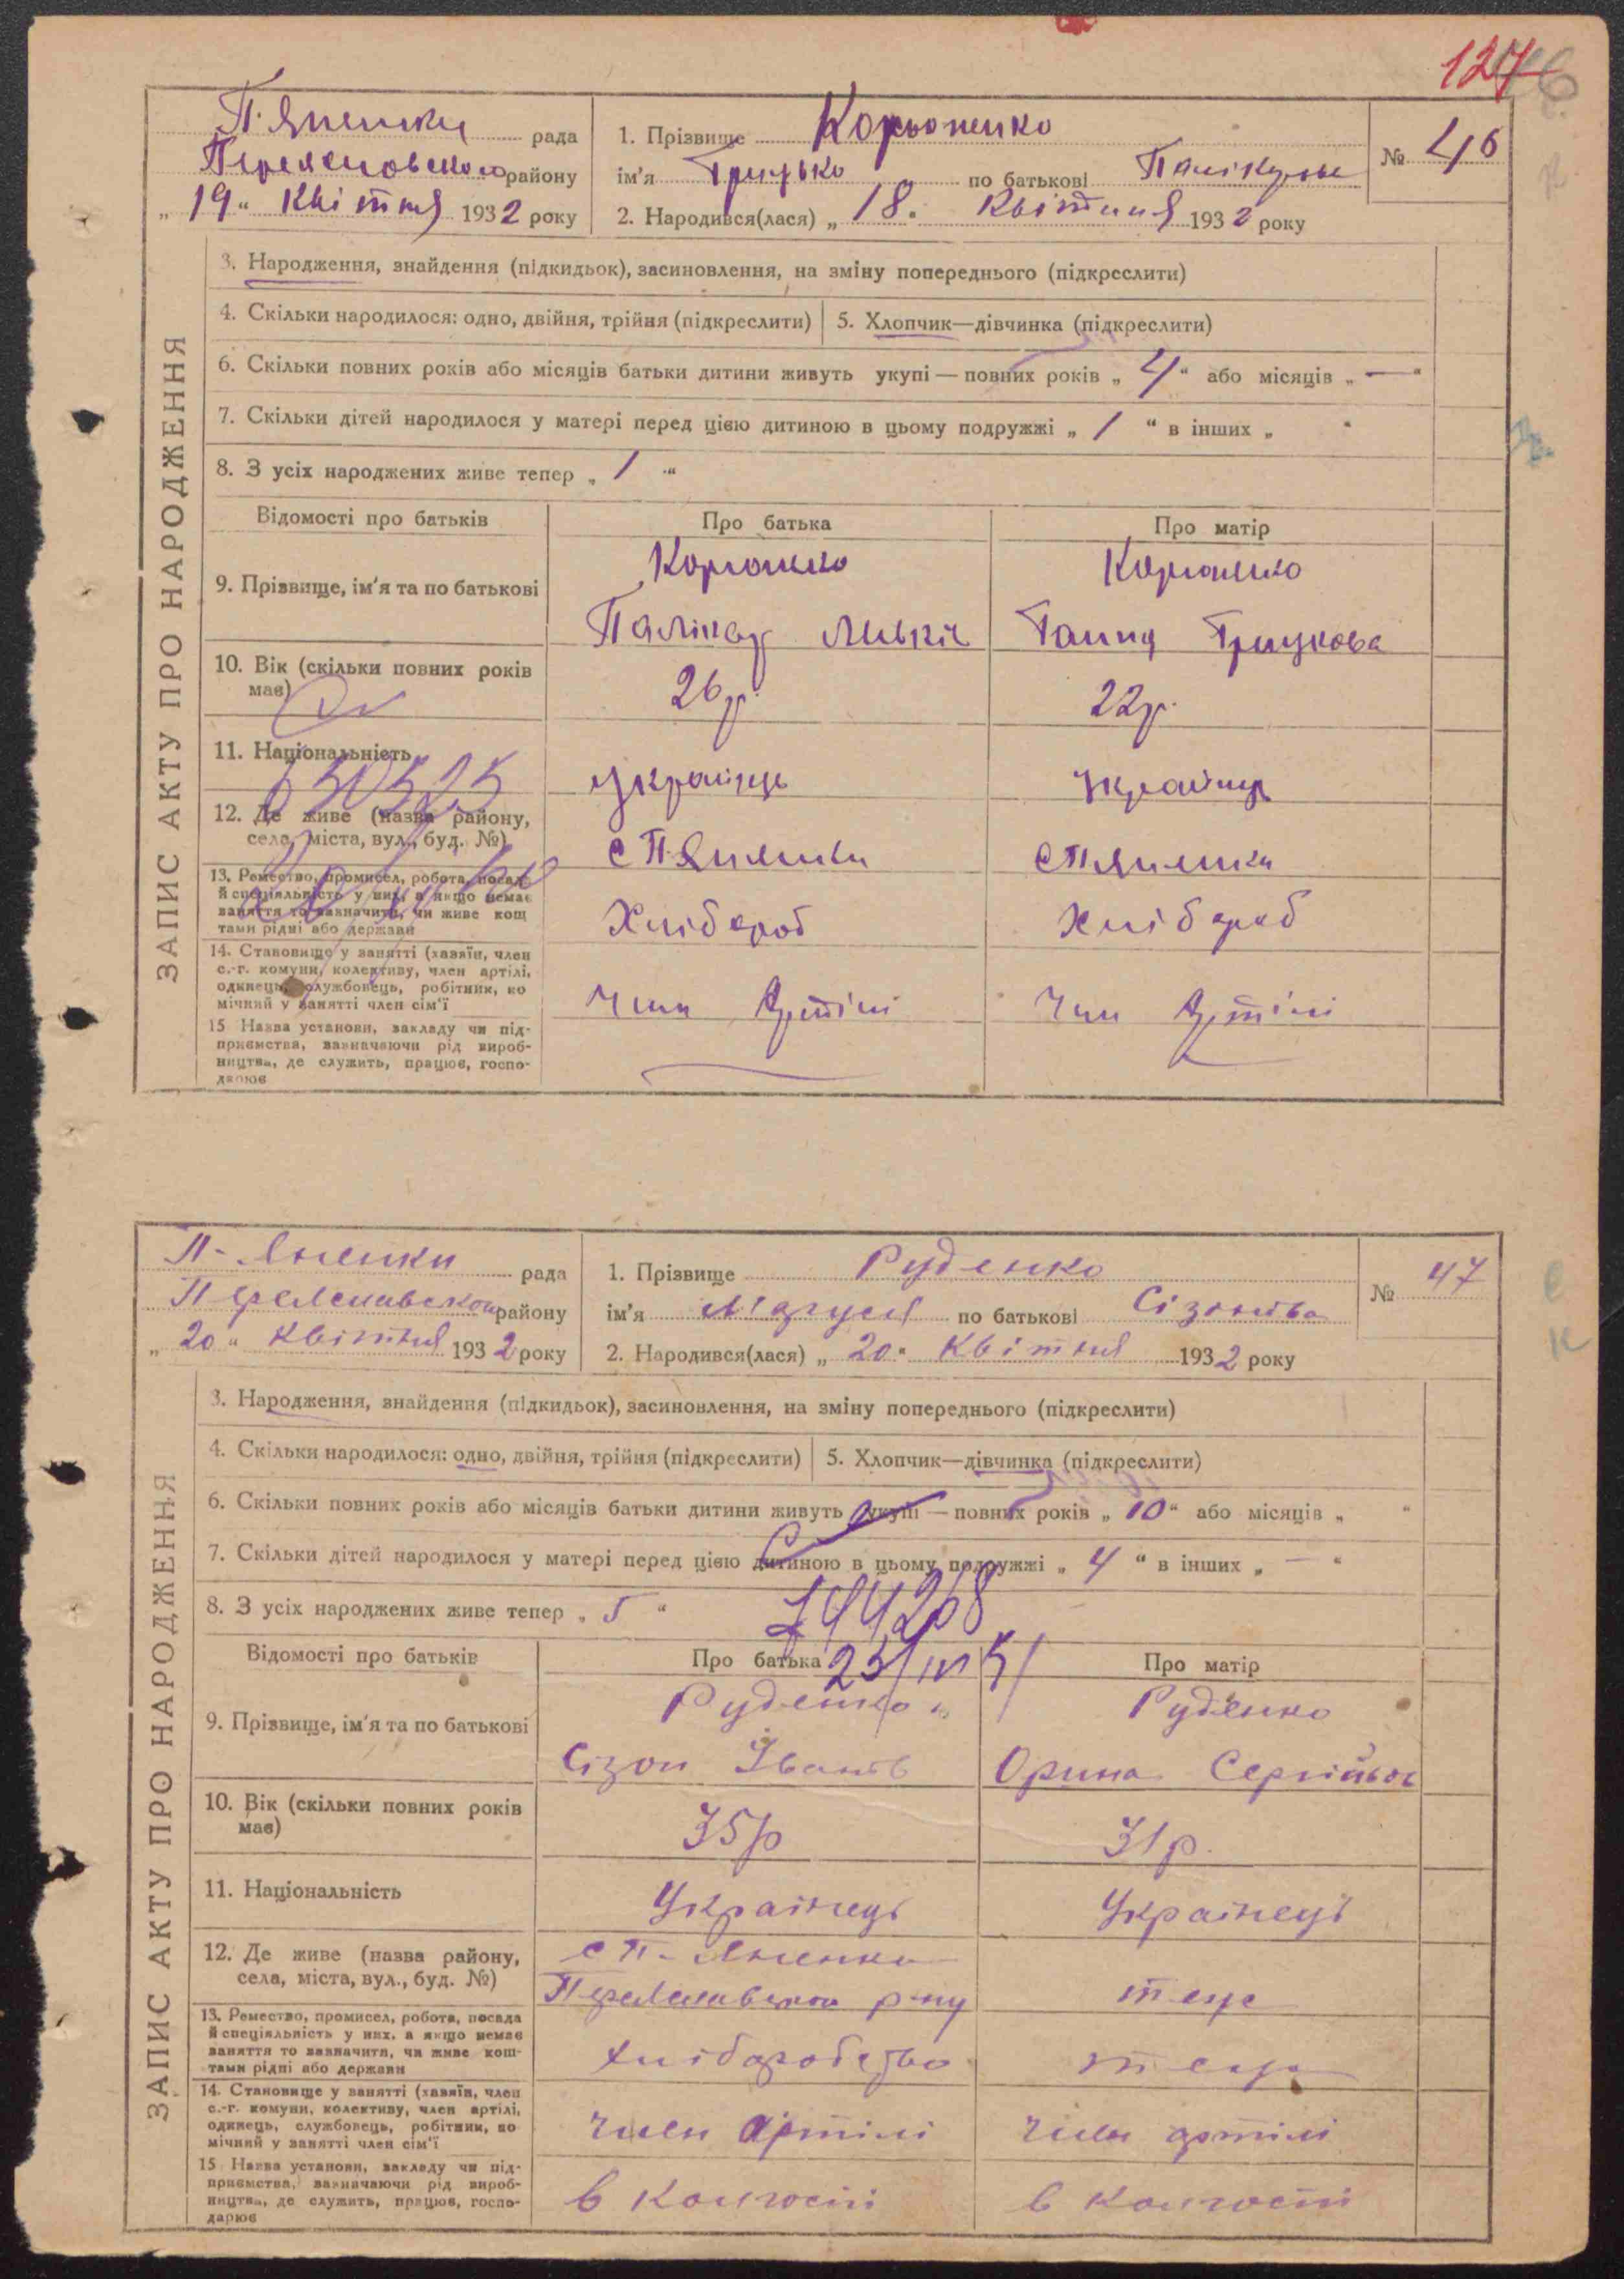 127
рада
району
„ 19 “ Квітня 1932 року
1. Прізвище
ім'я Грицько по батькові
2. Народився(лася) „ 18 “ Квітня 1932 року
№ 46
ЗАПИС АКТУ ПРО НАРОДЖЕННЯ
3. Народження, знайдення (підкидьок), засиновлення, на зміну попереднього (підкреслити)
4. Скільки народилося: одно, двійня, трійня (підкреслити)
5. Хлопчик—дівчинка (підкреслити)
6. Скільки повних років або місяців батьки дитини живуть укупі — повних років „ 4 “ або місяців „ — “
7. Скільки дітей народилося у матері перед цією дитиною в цьому подружжі „ 1 “ в інших „ “
8. З усіх народжених живе тепер „ 1 “
Відомості про батьків
Про батька
Про матір
9. Прізвище, ім'я та по батькові
Ганна Грицкова
10. Вік (скільки повних років
має)
26 р.
22 р.
11. Національність
Українець
12. Де живе (назва району,
села, міста, вул., буд. №)
13. Ремество, промисел, робота, посада
й спеціяльність у них, а якщо немає
заняття то зазначити, чи живе кош
тами рідні або держави
Хлібороб
Хлібороб
14. Становище у занятті (хазяїн, член
с.-г. комуни, колективу, член артілі,
одинець, службовець, робітник, по
мічний у занятті член сім'ї
Член Артілі
Член Артілі
15 Назва установи, закладу чи під-
приємства, зазначаючи рід вироб-
ництва, де служить, працює, госпо-
дарює
П-Яненки рада
району
„ 20 “ Квітня 1932 року
1. Прізвище Руденко
ім'я Маруся по батькові Сізонова
2. Народився(лася) „ 20 “ Квітня 1932 року
№ 47
ЗАПИС АКТУ ПРО НАРОДЖЕННЯ
3. Народження, знайдення (підкидьок), засиновлення, на зміну попереднього (підкреслити)
4. Скільки народилося: одно, двійня, трійня (підкреслити)
5. Хлопчик—дівчинка (підкреслити)
6. Скільки повних років або місяців батьки дитини живуть укупі — повних років „ 10 “ або місяців „ “
7. Скільки дітей народилося у матері перед цією дитиною в цьому подружжі „ 4 “ в інших „ — “
8. З усіх народжених живе тепер „ 5 “
Відомості про батьків
Про батька
Про матір
9. Прізвище, ім'я та по батькові
Руденко
Руденко
Сізон Іванів
Орина
10. Вік (скільки повних років
має)
35 р
31 р.
11. Національність
Українець
Українець
12. Де живе (назва району,
села, міста, вул., буд. №)
с П-Яненки
р-ну
теж
13. Ремество, промисел, робота, посада
й спеціяльність у них, а якщо немає
заняття то зазначити, чи живе кош-
тами рідні або держави
Хліборобство
теж
14. Становище у занятті (хазяїн, член
с.-г. комуни, колективу, член артілі,
одинець, службовець, робітник, по
мічний у занятті член сім'ї
член артілі
член артілі
15 Назва установи, закладу чи під-
приємства, зазначаючи рід вироб-
ництва, де служить, працює, госпо-
дарює
в колгоспі
в колгоспі